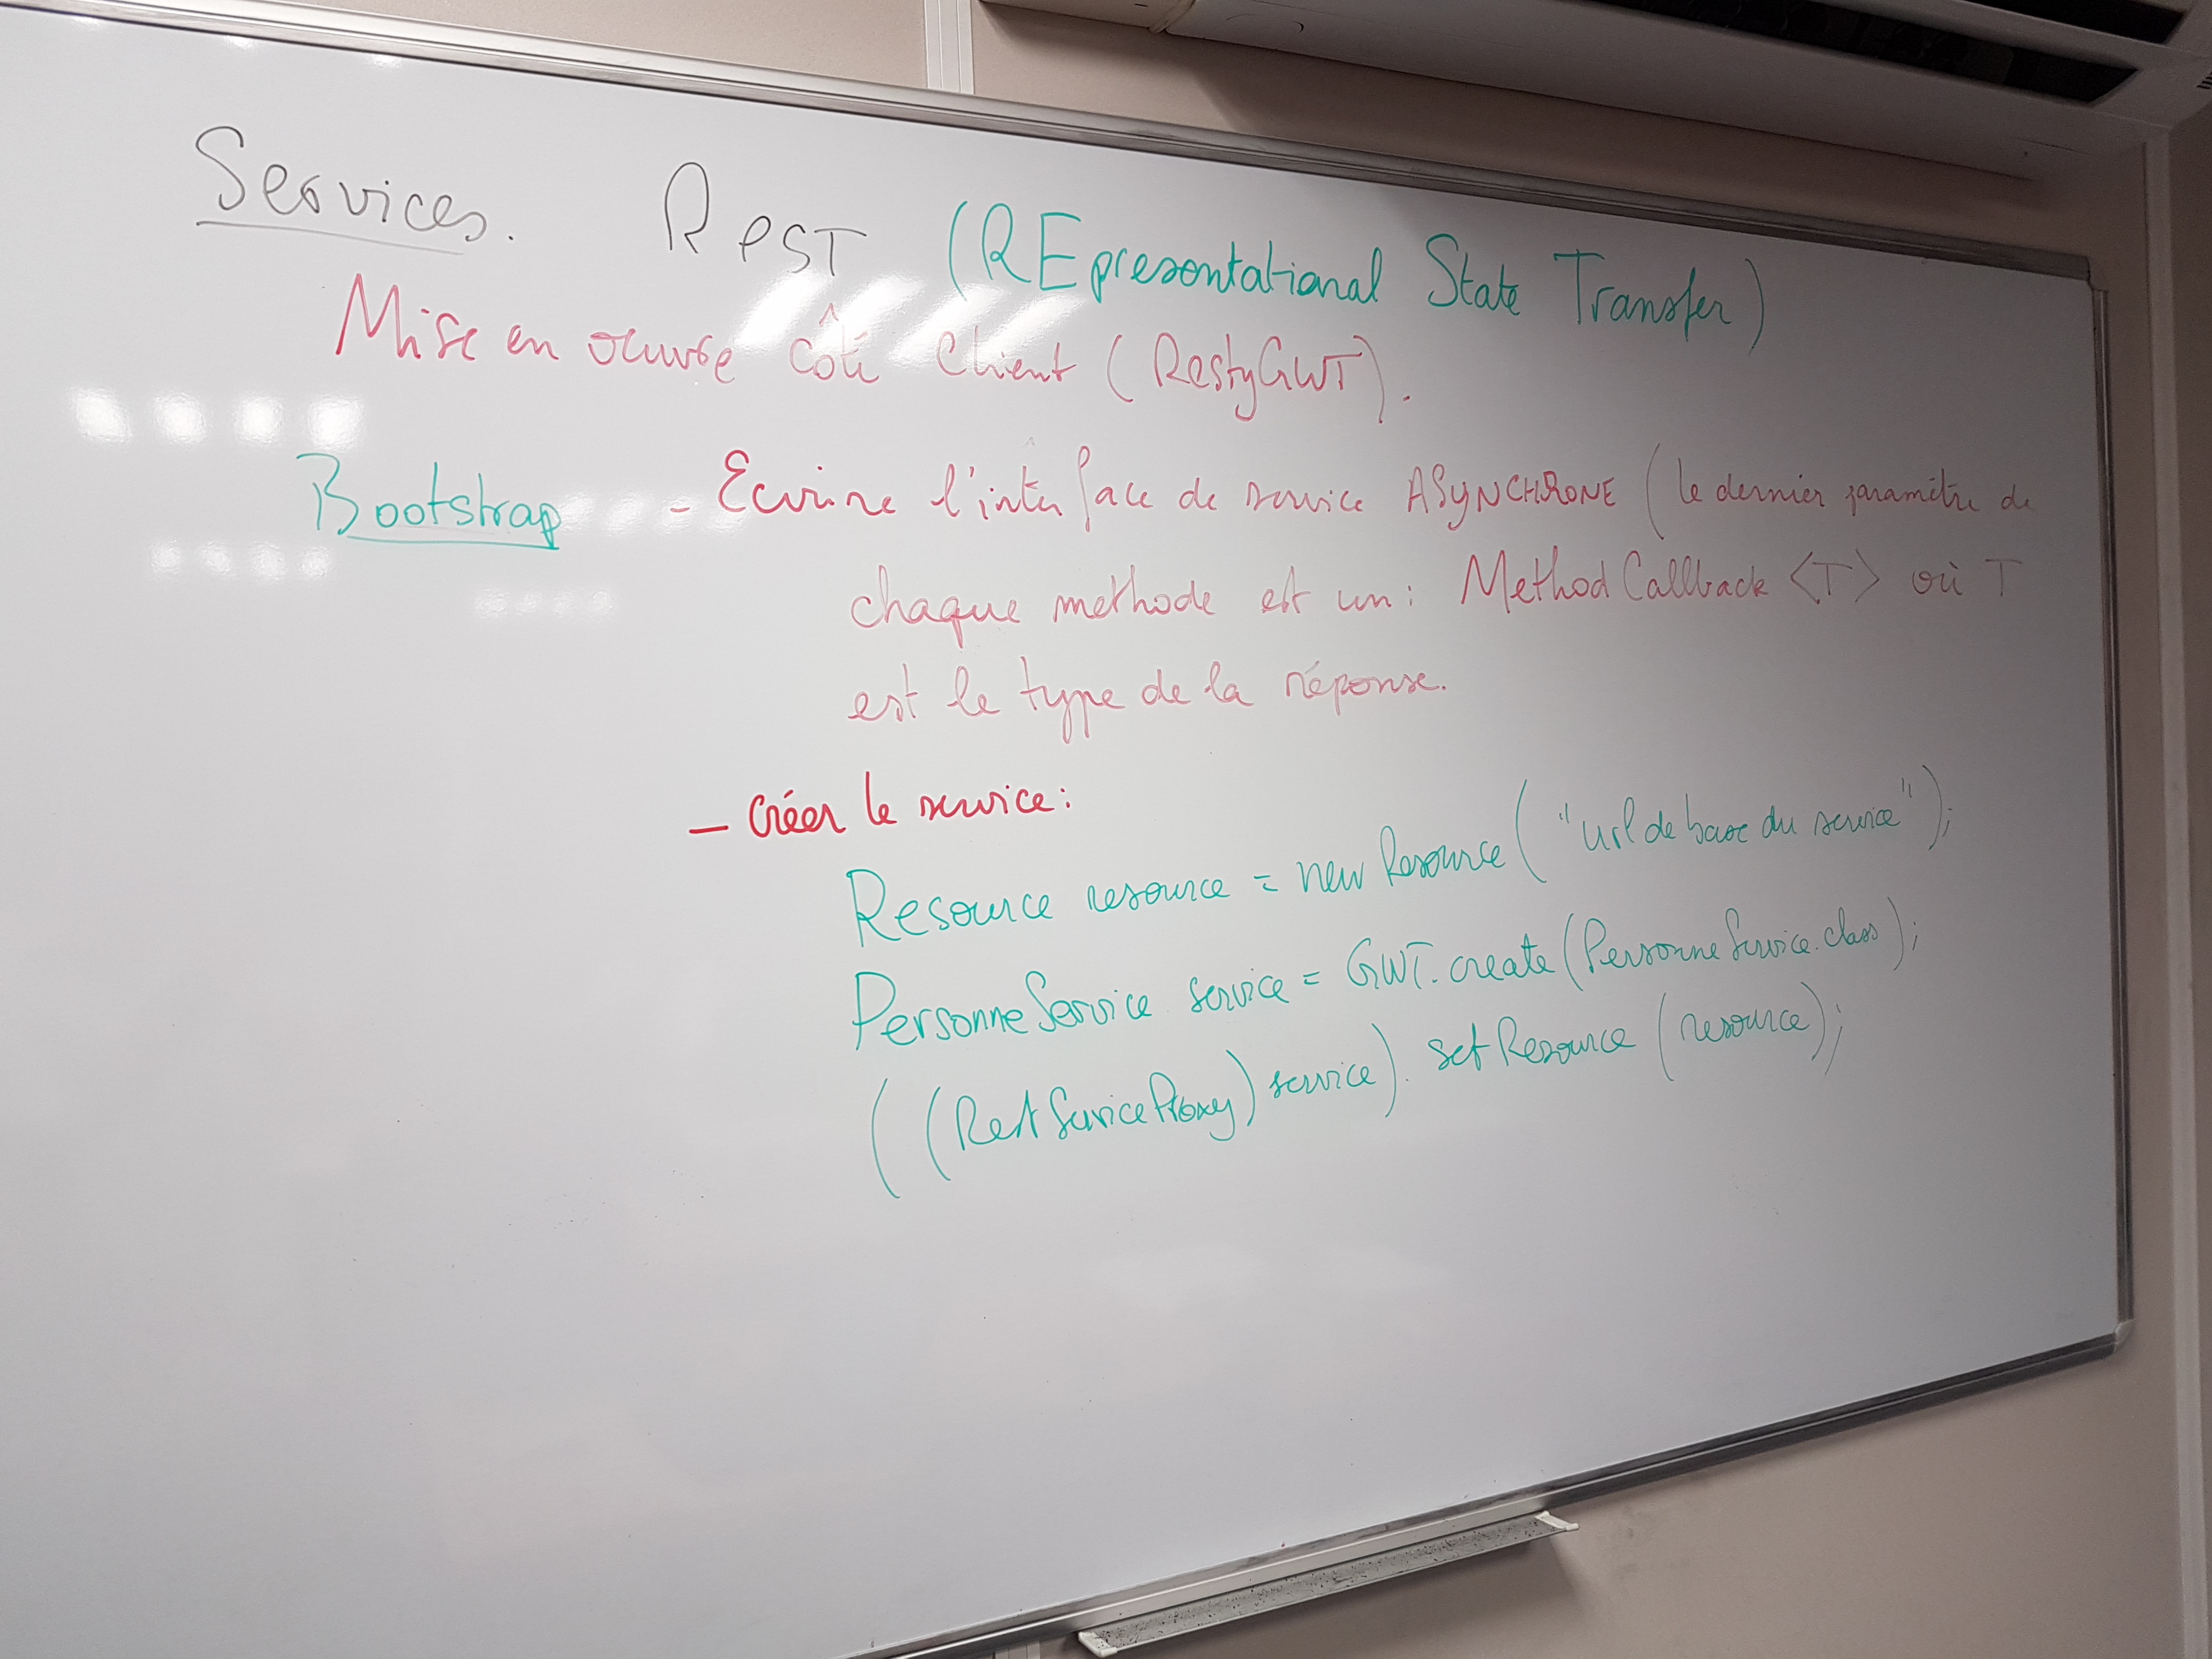 Services. ResT (REpresentational State Transfer)
Mise en oeuvre côté Client (RestyGWT).
Bootstrap - Ecrire l'interface de service ASYNCHRONE (le dernier paramètre de
chaque methode est un : MethodCallback <T> où T
est le type de la réponse.
- Créer le service :
Resource resource = new Resource ("url de base du service");
PersonneService service = GWT.create(PersonneService.class);
((RestServiceProxy) service).setResource (resource);